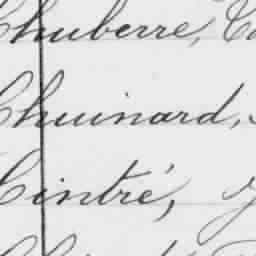 Chuberre,
Chuinard,
Cintré,